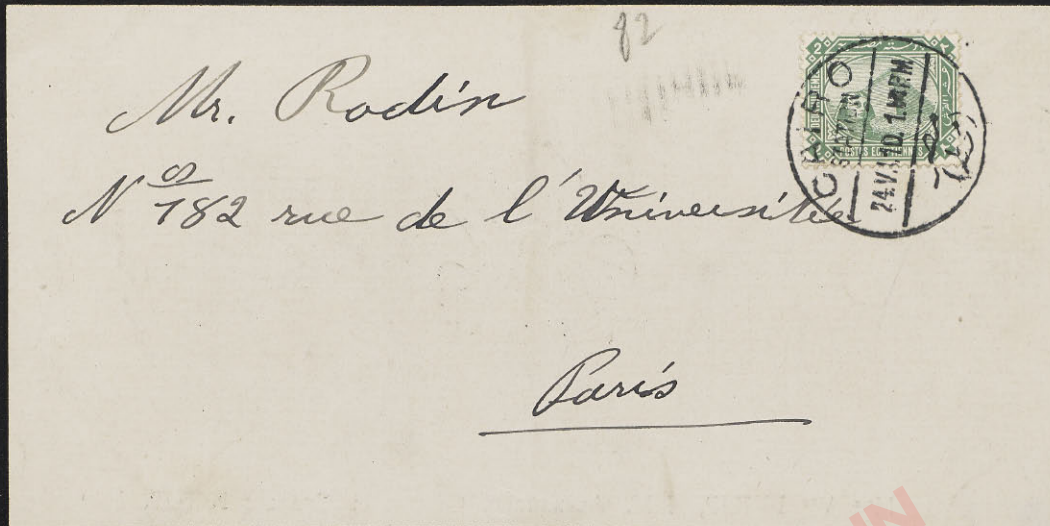 82
Mr. Rodin
No 182 rue de l'Universitée
Paris
2
POSTES EGYPTIENNES
CAIRO
STATION
1. PM
IN